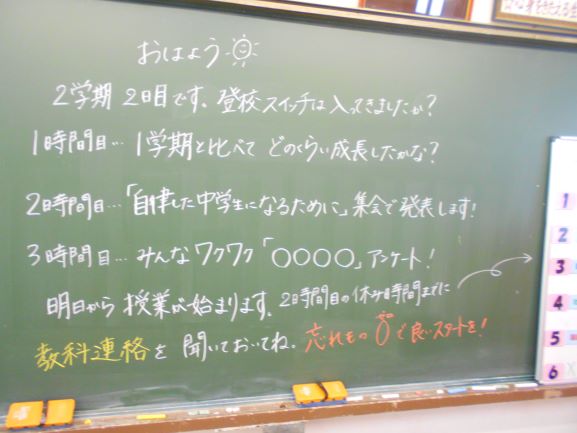 おはよう
2学期 2日目です。登校スイッチは入ってきましたか?
1時間目… 1学期と比べて どのくらい成長したかな?
2時間目…「自律した中学生になるために」集会で発表します!
3時間目… みんなワクワク「〇〇〇〇」アンケート!
明日から 授業が始まります。2時間目の休み時間までに
教科連絡を 聞いておいてね。忘れもの0で良いスタートを!
1
2
3
4
5
6